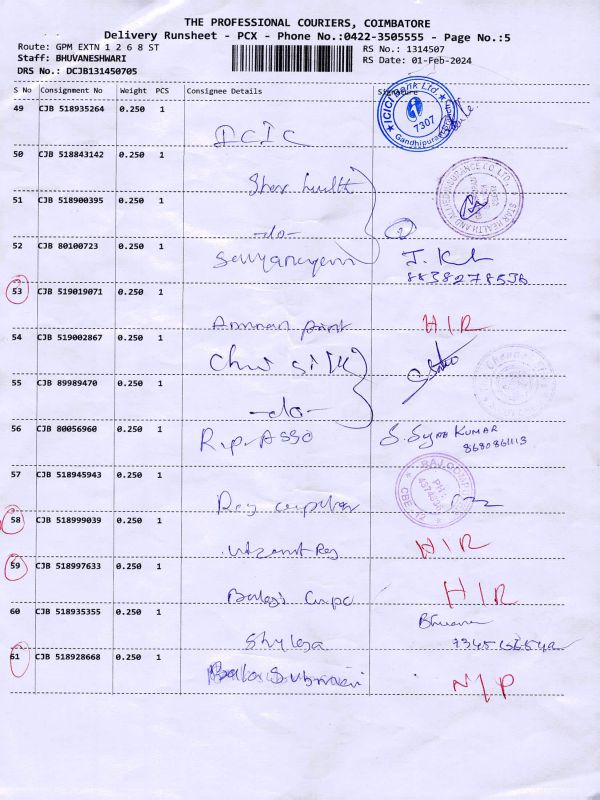 THE PROFESSIONAL COURIERS, COIMBATORE
Delivery Runsheet - PCX - Phone No.:0422-3505555 - Page No.:5
Route: GPM EXTN 1 2 6 8 ST
RS No.: 1314507
Staff: BHUVANESHWARI
RS Date: 01-Feb-2024
DRS No.: DCJB131450705
S No Consignment No Weight PCS Consignee Details Signature
49 CJB 518935264 0.250 1
ICICI Bank Ltd
7307
Gandhipuram
ICIC
50 CJB 518843142 0.250 1
Star health
STAR HEALTH AND ALLIED INSURANCE CO. LTD.
51 CJB 518900395 0.250 1
-do-
2
52 CJB 80100723 0.250 1
53 CJB 519019071 0.250 1
Amman print H/R
54 CJB 519002867 0.250 1
Chri silk
55 CJB 89989470 0.250 1
-do-
56 CJB 80056960 0.250 1
R.P. ASSO
KUMAR
8680861113
57 CJB 518945943 0.250 1
RAJ COMP
PH:
CBE-12
58 CJB 518999039 0.250 1
H/R
59 CJB 518997633 0.250 1
H/R
60 CJB 518935355 0.250 1
Shylesa
61 CJB 518928668 0.250 1
N/P